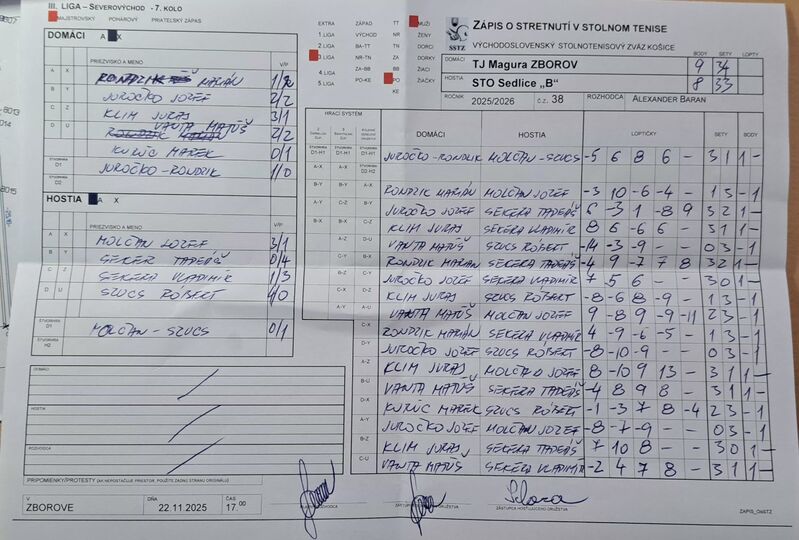 III. LIGA – SEVEROVÝCHOD - 7. KOLO
MAJSTROVSKÝ POHÁROVÝ PRIATEĽSKÝ ZÁPAS
DOMÁCI A X
PRIEZVISKO A MENO V/P
A X RONDZIK MARIÁN
B Y JUROČKO JOZEF 2/2
C Z KLIM JURAJ 3/1
D U VANTA MATÚŠ 2/2
KURUC MAREK 0/1
ŠTVORHRA D1 JUROČKO - RONDZIK 1/0
D2
HOSTIA A X
PRIEZVISKO A MENO V/P
A X MOLČAN JOZEF 3/1
B Y SEKERA TADEÁŠ 0/4
C Z SEKERA VLADIMÍR 1/3
D U SZUCS RÓBERT 4/0
ŠTVORHRA D1 MOLČAN - SZUCS 0/1
H2
DOMÁCI
HOSTIA
ROZHODCA
PRIPOMIENKY/PROTESTY (AK NEPOSTAČUJE PRIESTOR, POUŽITE ZADNÚ STRANU ORIGINÁLU)
V DŇA ČAS
ZBOROVE 22.11.2025 17.00
EXTRA ZÁPAD TT MUŽI
1 LIGA VÝCHOD NR ŽENY
2 LIGA BA-TT TN DORCI
3 LIGA NR-TN ZA DORKY
4 LIGA ZA-BB BB ŽIACI
5 LIGA PO-KE PO ŽIAČKY
KE
SSTZ
ZÁPIS O STRETNUTÍ V STOLNOM TENISE
VÝCHODOSLOVENSKÝ STOLNOTENISOVÝ ZVÄZ KOŠICE
BODY SETY LOPTY
DOMÁCI TJ Magura ZBOROV 9 34
HOSTIA STO Sedlice „B" 8 33
ROČNÍK 2025/2026 č.z. 38 ROZHODCA ALEXANDER BARAN
HRACÍ SYSTÉM
DOMÁCI HOSTIA LOPTIČKY SETY BODY
JUROČKO-RONDZIK MOLČAN-SZUCS -5 6 8 6 - 3 1 1 -
RONDZIK MARIÁN MOLČAN JOZEF -3 10 -6 -4 - 1 3 - 1
JUROČKO JOZEF SEKERA TADEÁŠ 6 -3 1 -8 9 3 2 1 -
KLIM JURAJ SEKERA VLADIMÍR 8 6 -6 6 - 3 1 1 -
VANTA MATÚŠ SZUCS RÓBERT -14 -3 -9 - - 0 3 - 1
RONDZIK MARIÁN SEKERA TADEÁŠ -4 9 -7 7 8 3 2 1 -
JUROČKO JOZEF SEKERA VLADIMÍR 7 5 6 - - 3 0 1 -
KLIM JURAJ SZUCS RÓBERT -8 -6 8 -9 - 1 3 - 1
VANTA MATÚŠ MOLČAN JOZEF 9 -8 9 -9 -11 2 3 - 1
RONDZIK MARIÁN SEKERA VLADIMÍR 4 -9 -6 -5 - 1 3 - 1
JUROČKO JOZEF SZUCS RÓBERT -8 -10 -9 - - 0 3 - 1
KLIM JURAJ MOLČAN JOZEF -8 10 9 13 - 3 1 1 -
VANTA MATÚŠ SEKERA TADEÁŠ -4 8 9 8 - 3 1 1 -
KURUC MAREK SZUCS RÓBERT -1 -3 7 8 -4 2 3 - 1
JUROČKO JOZEF MOLČAN JOZEF -8 -7 -9 - - 0 3 - 1
KLIM JURAJ SEKERA TADEÁŠ 7 10 8 - - 3 0 1 -
VANTA MATÚŠ SEKERA VLADIMÍR -2 4 7 8 - 3 1 1 -
ZÁSTUPCA HOSŤUJÚCEHO DRUŽSTVA
ZAPIS_OMSTZ